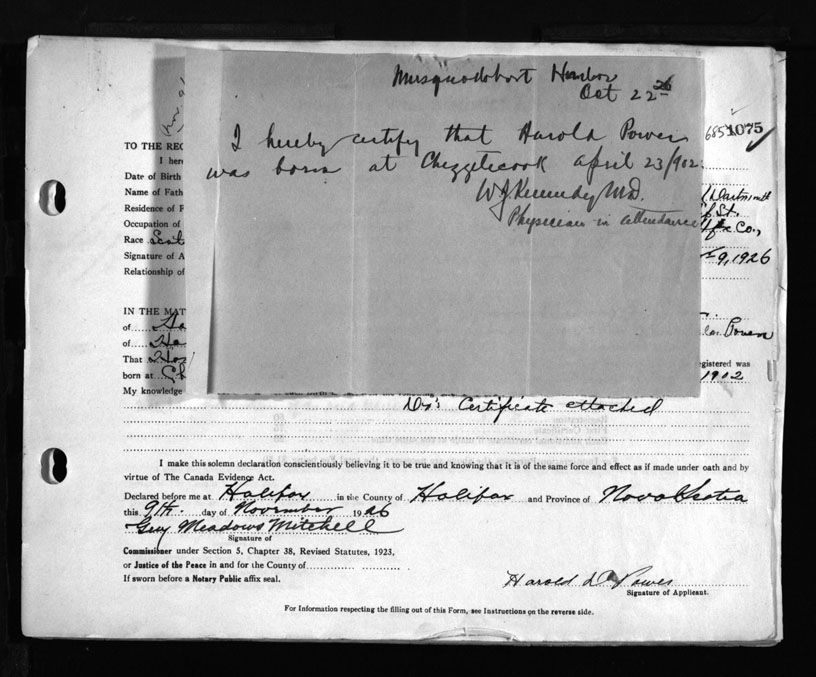 Musquodobort Harbor
Oct 22 26
I hereby certify that Harold Power
was born at Chezzetcook April 23/902.
W J Kennedy M.D.
Physician in attendance
6851075
TO THE REC
I here
Date of Birth
Name of Fath
Dartmouth
Residence of F
St.
Occupation of
Hfx Co.,
Race Scot
Signature of A
9, 1926
Relationship of
IN THE MAT
of Ha
Power
of Ha
That Ha
egistered was
born at Ch
1902
My knowledge
Dr's Certificate attached
I make this solemn declaration conscientiously believing it to be true and knowing that it is of the same force and effect as if made under oath and by
virtue of The Canada Evidence Act.
Declared before me at Halifax in the County of Halifax and Province of Nova Scotia
this 9th day of November 1926
Guy Meadows Mitchell
Signature of
Commissioner under Section 5, Chapter 38, Revised Statutes, 1923,
or Justice of the Peace in and for the County of
If sworn before a Notary Public affix seal.
Harold Power
Signature of Applicant.
For Information respecting the filling out of this Form, see Instructions on the reverse side.